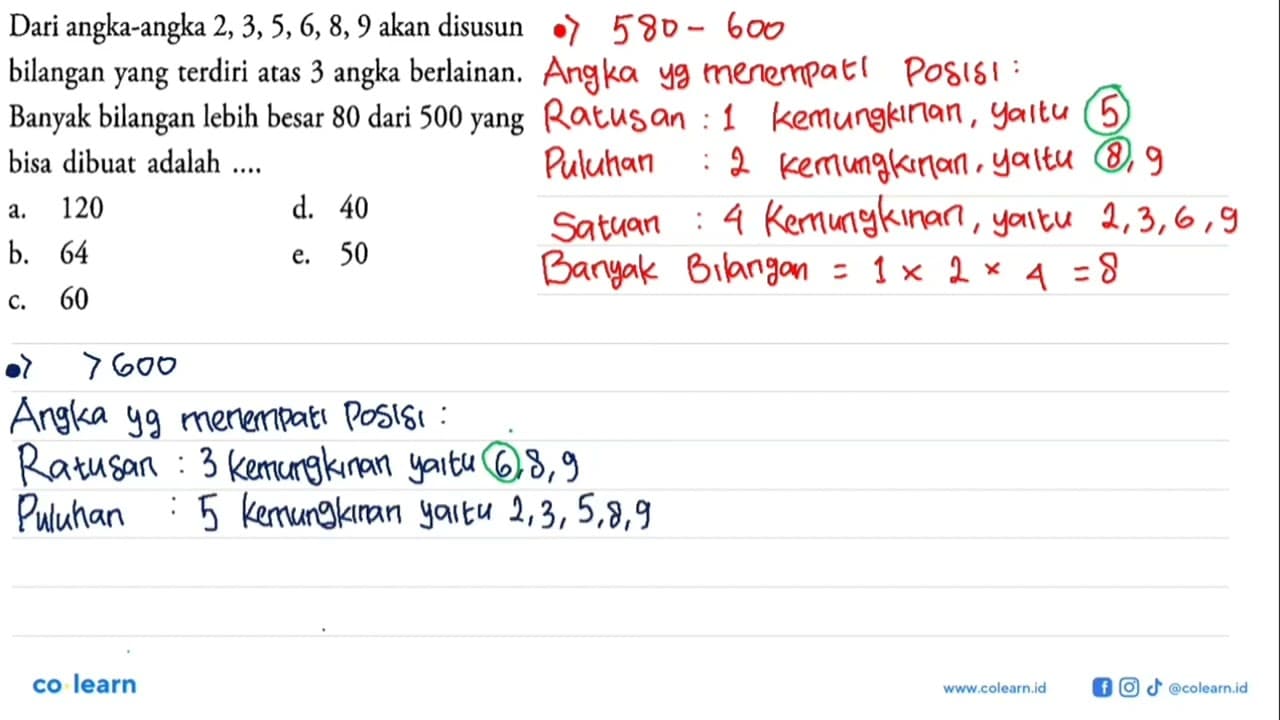 Dari angka-angka 2, 3, 5, 6, 8, 9 akan disusun
bilangan yang terdiri atas 3 angka berlainan.
Banyak bilangan lebih besar 80 dari 500 yang
bisa dibuat adalah ....
a. 120 d. 40
b. 64 e. 50
c. 60
•> 580 - 600
Angka yg menempati Posisi :
Ratusan : 1 kemungkinan, yaitu 5
Puluhan : 2 kemungkinan, yaitu 8, 9
Satuan : 4 Kemungkinan, yaitu 2, 3, 6, 9
Banyak Bilangan = 1 × 2 × 4 = 8
•> > 600
Angka yg menempati Posisi :
Ratusan : 3 kemungkinan yaitu 6, 8, 9
Puluhan : 5 kemungkinan yaitu 2, 3, 5, 8, 9
co learn
www.colearn.id
@colearn.id